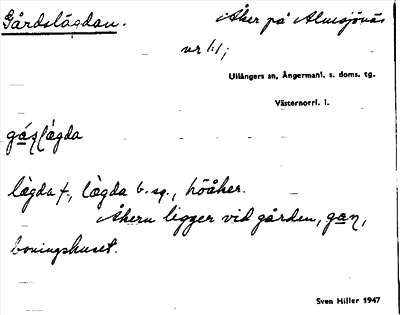 Gårdslägdan. Åker på Almsjönäs
nr 1:1;
Ullångers sn, Ångermanl. s. doms. tg.
Västernorrl. l.
lägda f., lägda b. sg., höåker.
Åkern ligger vid gården, gan,
boningshuset.
Sven Hiller 1947